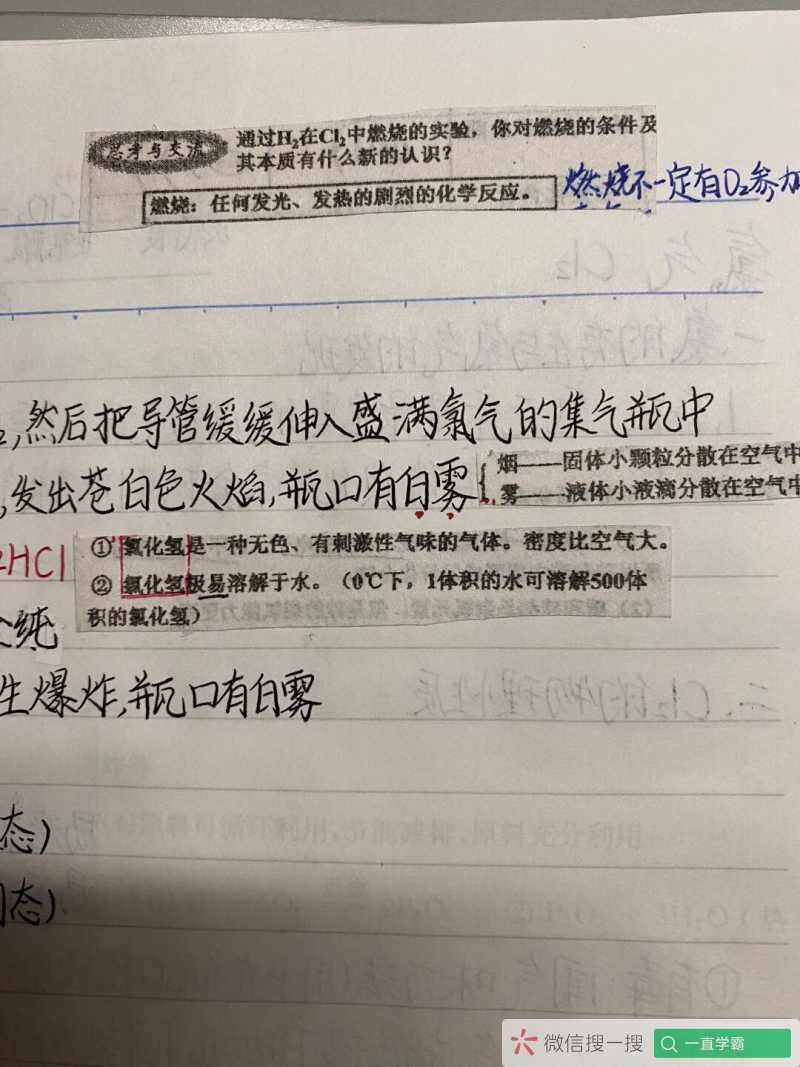 思考与交流
通过H₂在Cl₂中燃烧的实验，你对燃烧的条件及
其本质有什么新的认识？
燃烧：任何发光、发热的剧烈的化学反应。
燃烧不一定有O₂参加
,然后把导管缓缓伸入盛满氯气的集气瓶中
,发出苍白色火焰,瓶口有白雾
烟——固体小颗粒分散在空气中
雾——液体小液滴分散在空气中
HCl
① 氯化氢是一种无色、有刺激性气味的气体。密度比空气大。
② 氯化氢极易溶解于水。（0℃下，1体积的水可溶解500体
积的氯化氢）
纯
生爆炸,瓶口有白雾
态)
态)
微信搜一搜
一直学霸